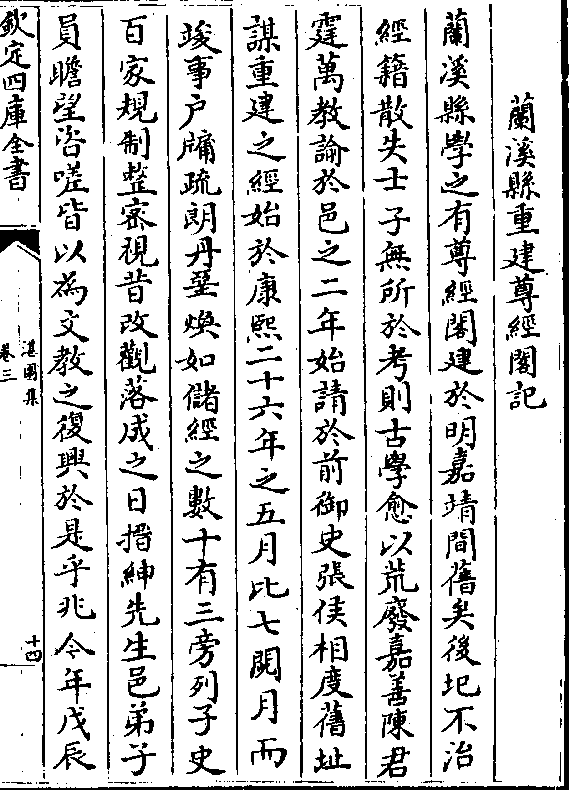 蘭溪縣重建尊經閣記
蘭溪縣學之有尊經閣建於明嘉靖間舊矣後圮不治
經籍散失士子無所於考則古學愈以荒廢嘉善陳君
霆萬教諭於邑之二年始請於前御史張侯相度舊址
謀重建之經始於康熙二十六年之五月比七閱月而
竣事户牖疏朗丹堊煥如儲經之數十有三旁列子史
百家規制整密視昔改觀落成之日搢紳先生邑弟子
員瞻望咨嗟皆以為文教之復興於是乎兆今年戊辰
欽定四庫全書
湛園集
卷三
十四